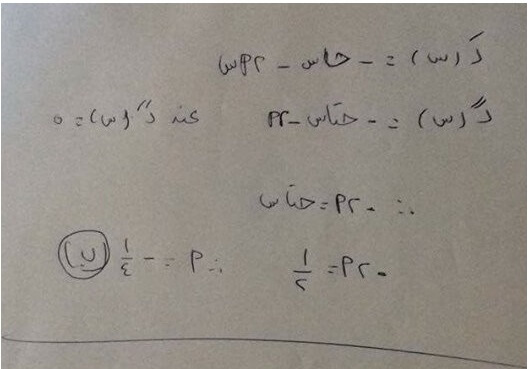 دَ(س) = - جاس - ٢م س
دً(س) = - جتاس - ٢م عند دً(س) = ٠
∴ - ٢م = جتاس
- ٢م = ١/٢ ∴ م = - ١/٤ (ب)